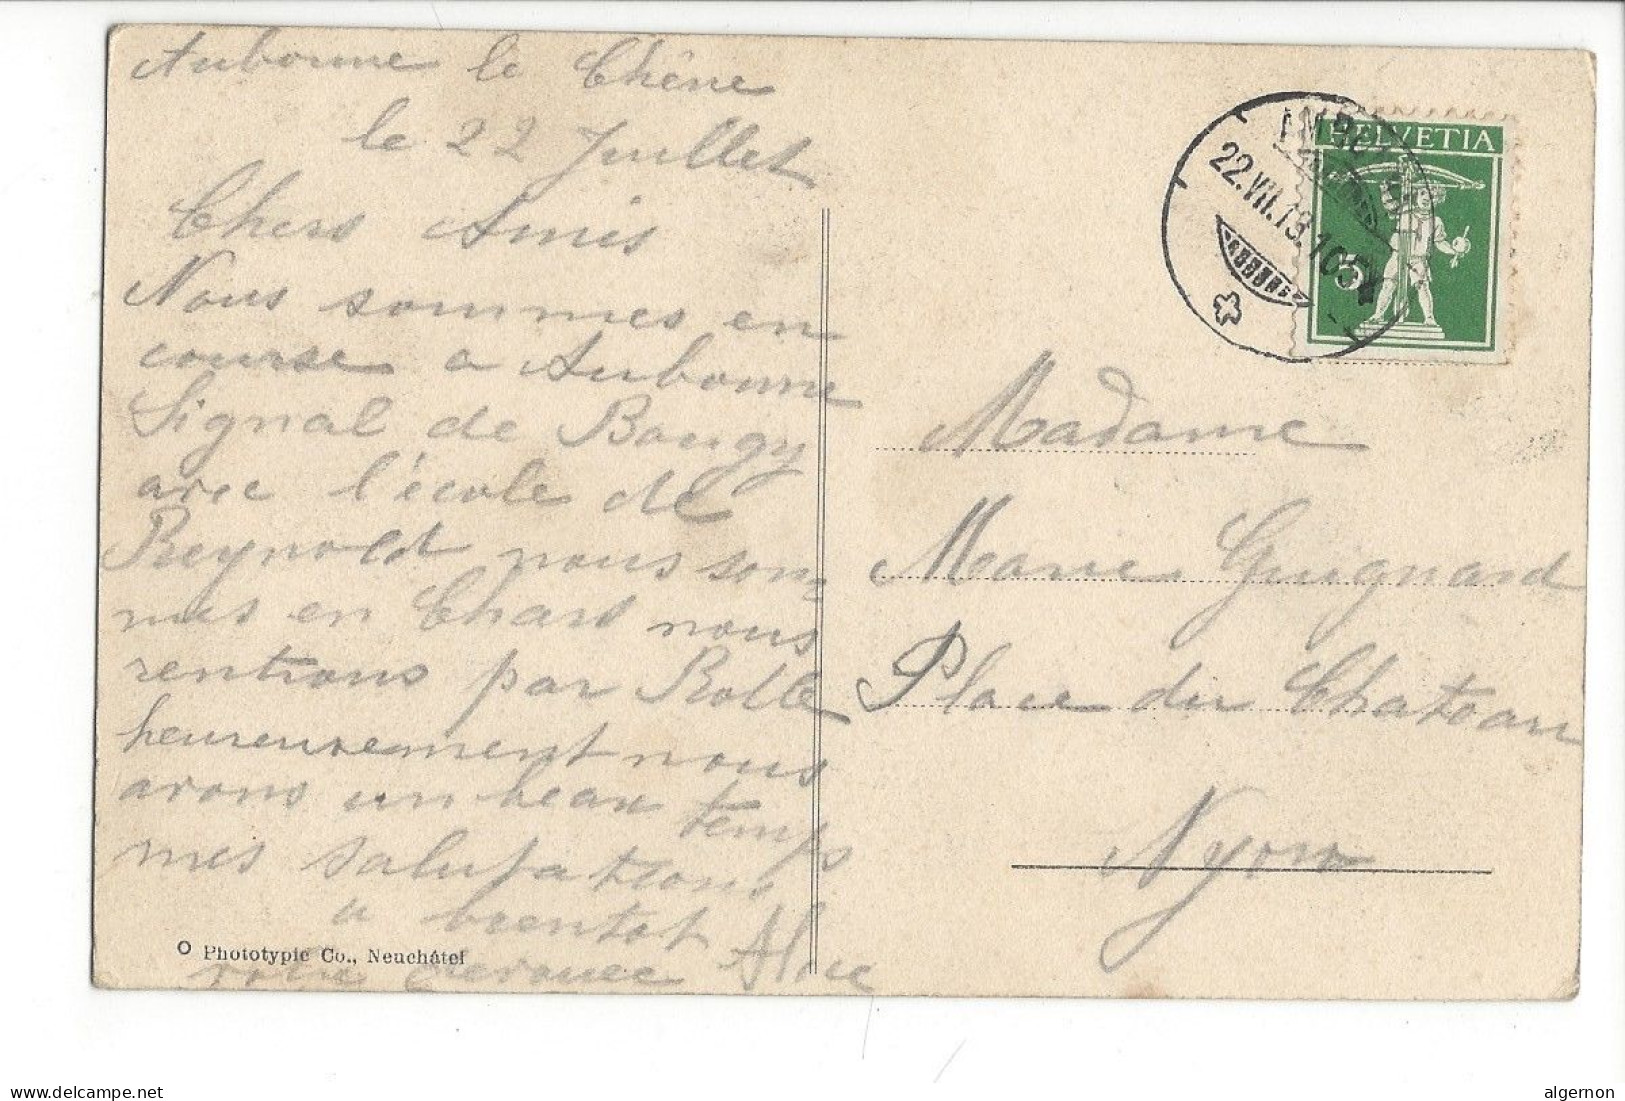 Aubonne le Chêne
le 22 Juillet
Chers Amis
Nous sommes en
course a Aubonne
Signal de Bougy
avec l'école de
Reynold nous som-
mes en Chars nous
rentrons par Rolle
heureusement nous
avons un beau temps
mes salutations
a bientot
votre devouee Alice
O Phototypie Co., Neuchâtel
22.VII.13.10
HELVETIA
5
Madame
Marie Guignard
Place du Chateau
Nyon
delcampe.net
algernon